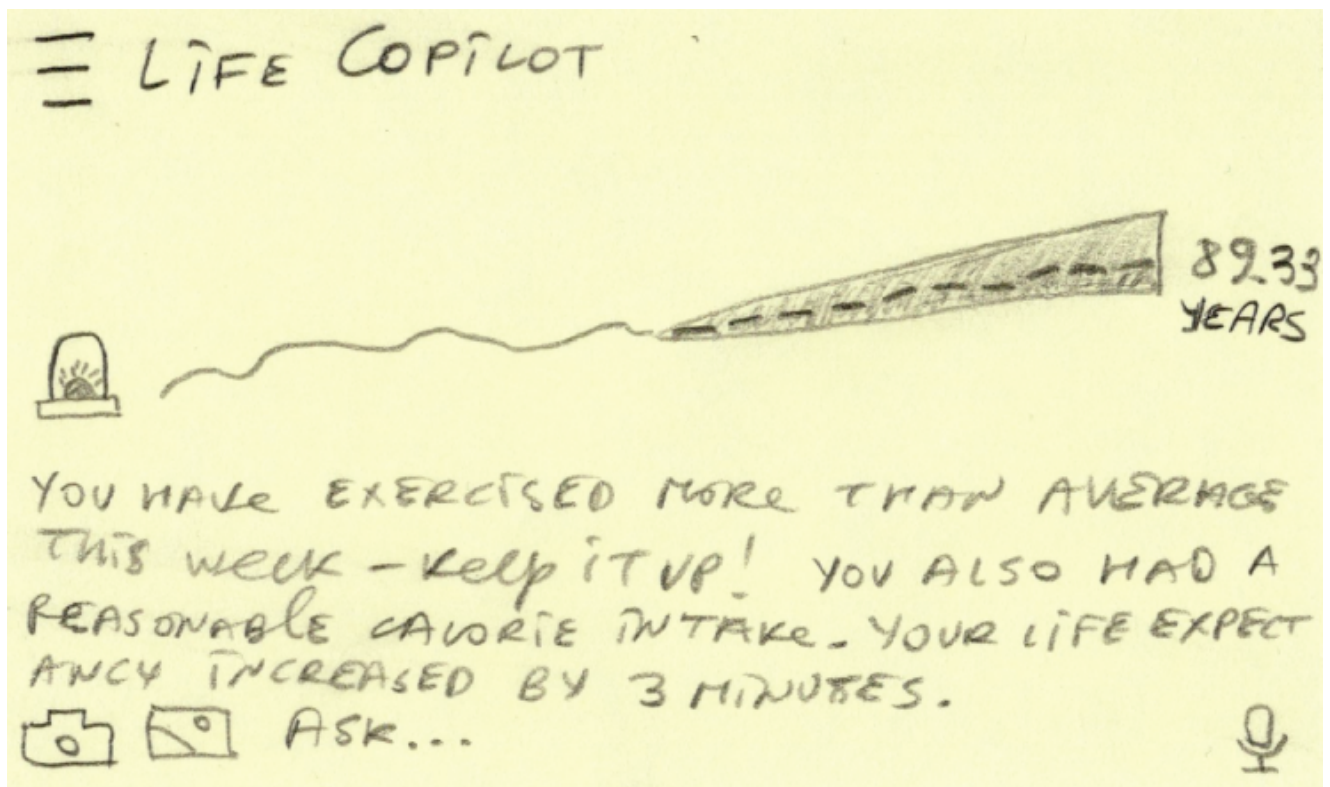 LIFE COPILOT
89.33
YEARS
YOU HAVE EXERCISED MORE THAN AVERAGE
THIS WEEK - KEEP IT UP! YOU ALSO HAD A
REASONABLE CALORIE INTAKE. YOUR LIFE EXPECT
ANCY INCREASED BY 3 MINUTES.
ASK...